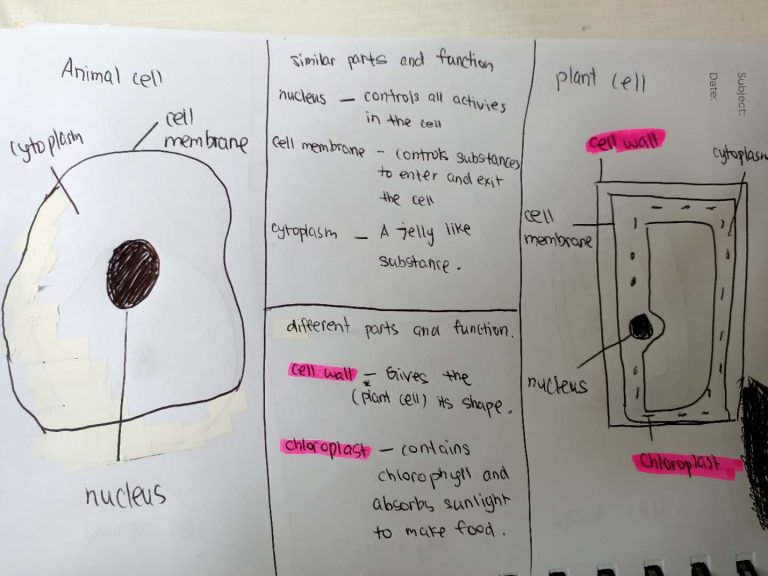 Animal cell
cytoplasm
cell
membrane
nucleus
similar parts and function
nucleus — controls all activies
in the cell
cell membrane - controls substances
to enter and exit
the cell
cytoplasm — A jelly like
substance.
different parts and function.
cell wall — Gives the
(plant cell) its shape.
chloroplast — contains
chlorophyll and
absorbs sunlight
to make food.
plant cell
Subject:
Date:
cell wall
cytoplasm
cell
membrane
nucleus
Chloroplast